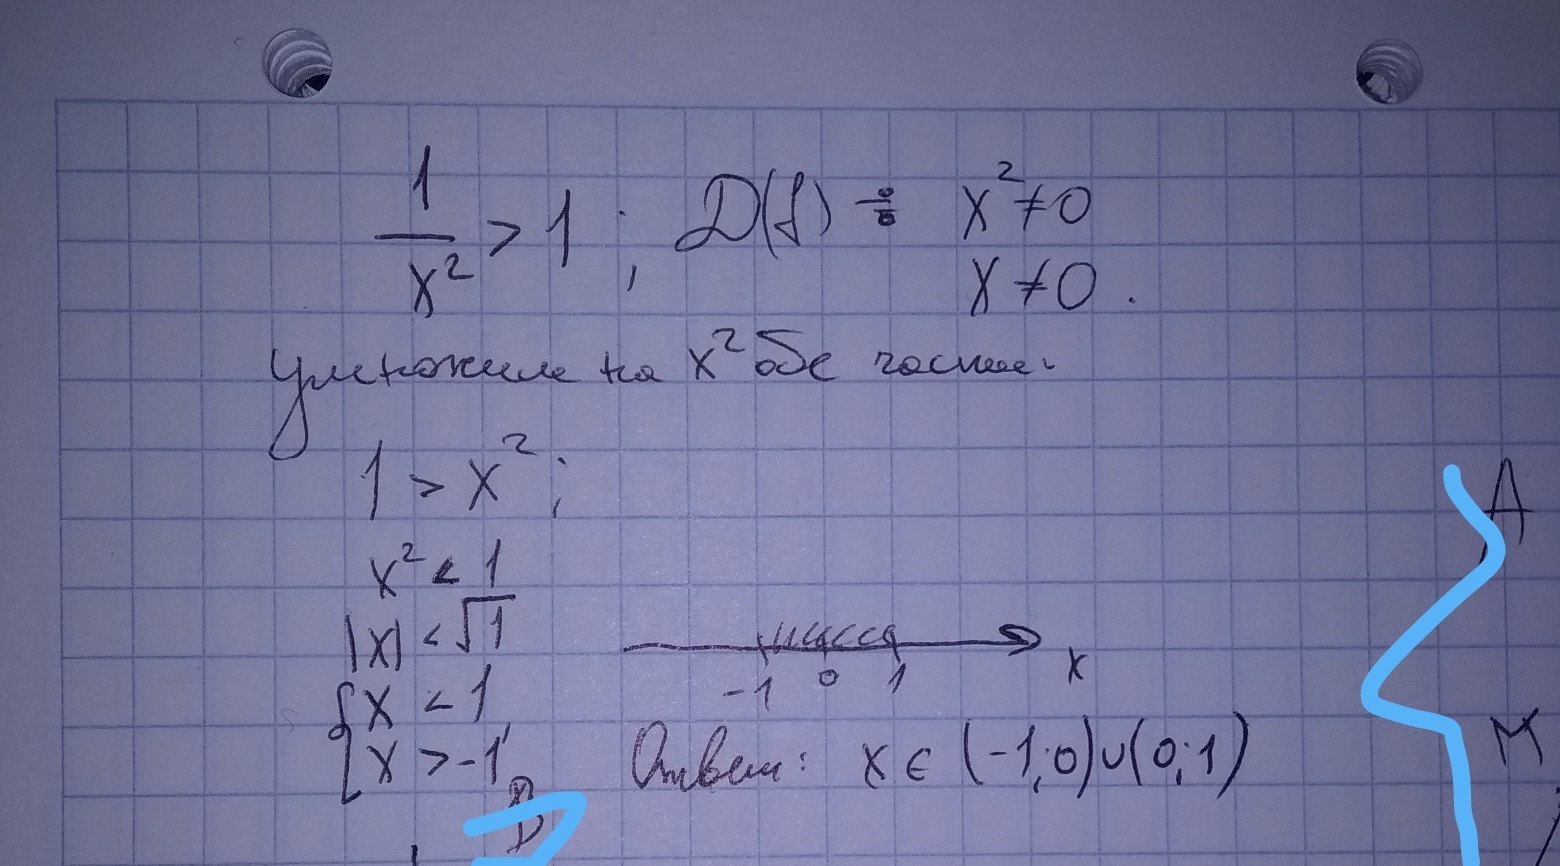 1/x² > 1 ; D(f) ÷ x² ≠ 0
x ≠ 0 .
умножим на x² обе части.
1 > x² ;
x² < 1
|x| < √1
{ x < 1,
x > -1
-1 0 1 x
Ответ: x ∈ (-1;0)∪(0;1)
A
M